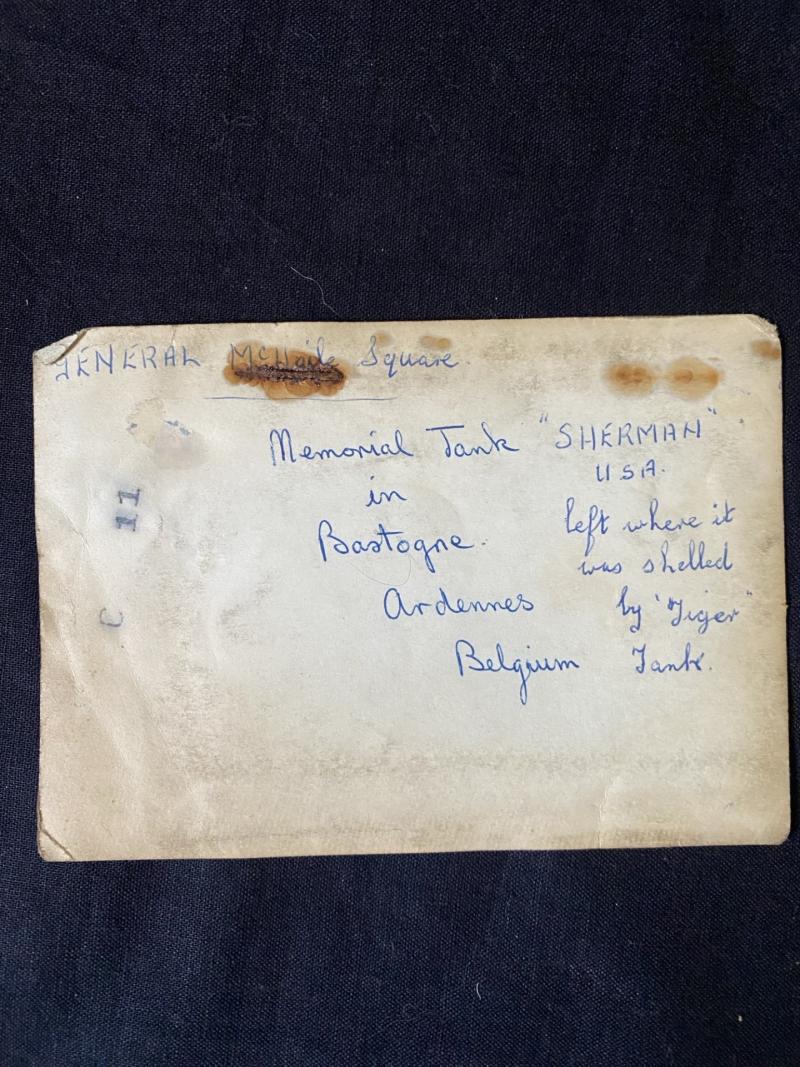 GENERAL Square.
Memorial Tank
in
Bastogne.
Ardennes
Belgium
"SHERMAN"
U.S.A.
left where it
was shelled
by 'Tiger"
Tank.
11
C